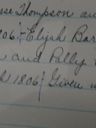 Thompson an
06 } Elijah Bar
and Polly
1806 } Given